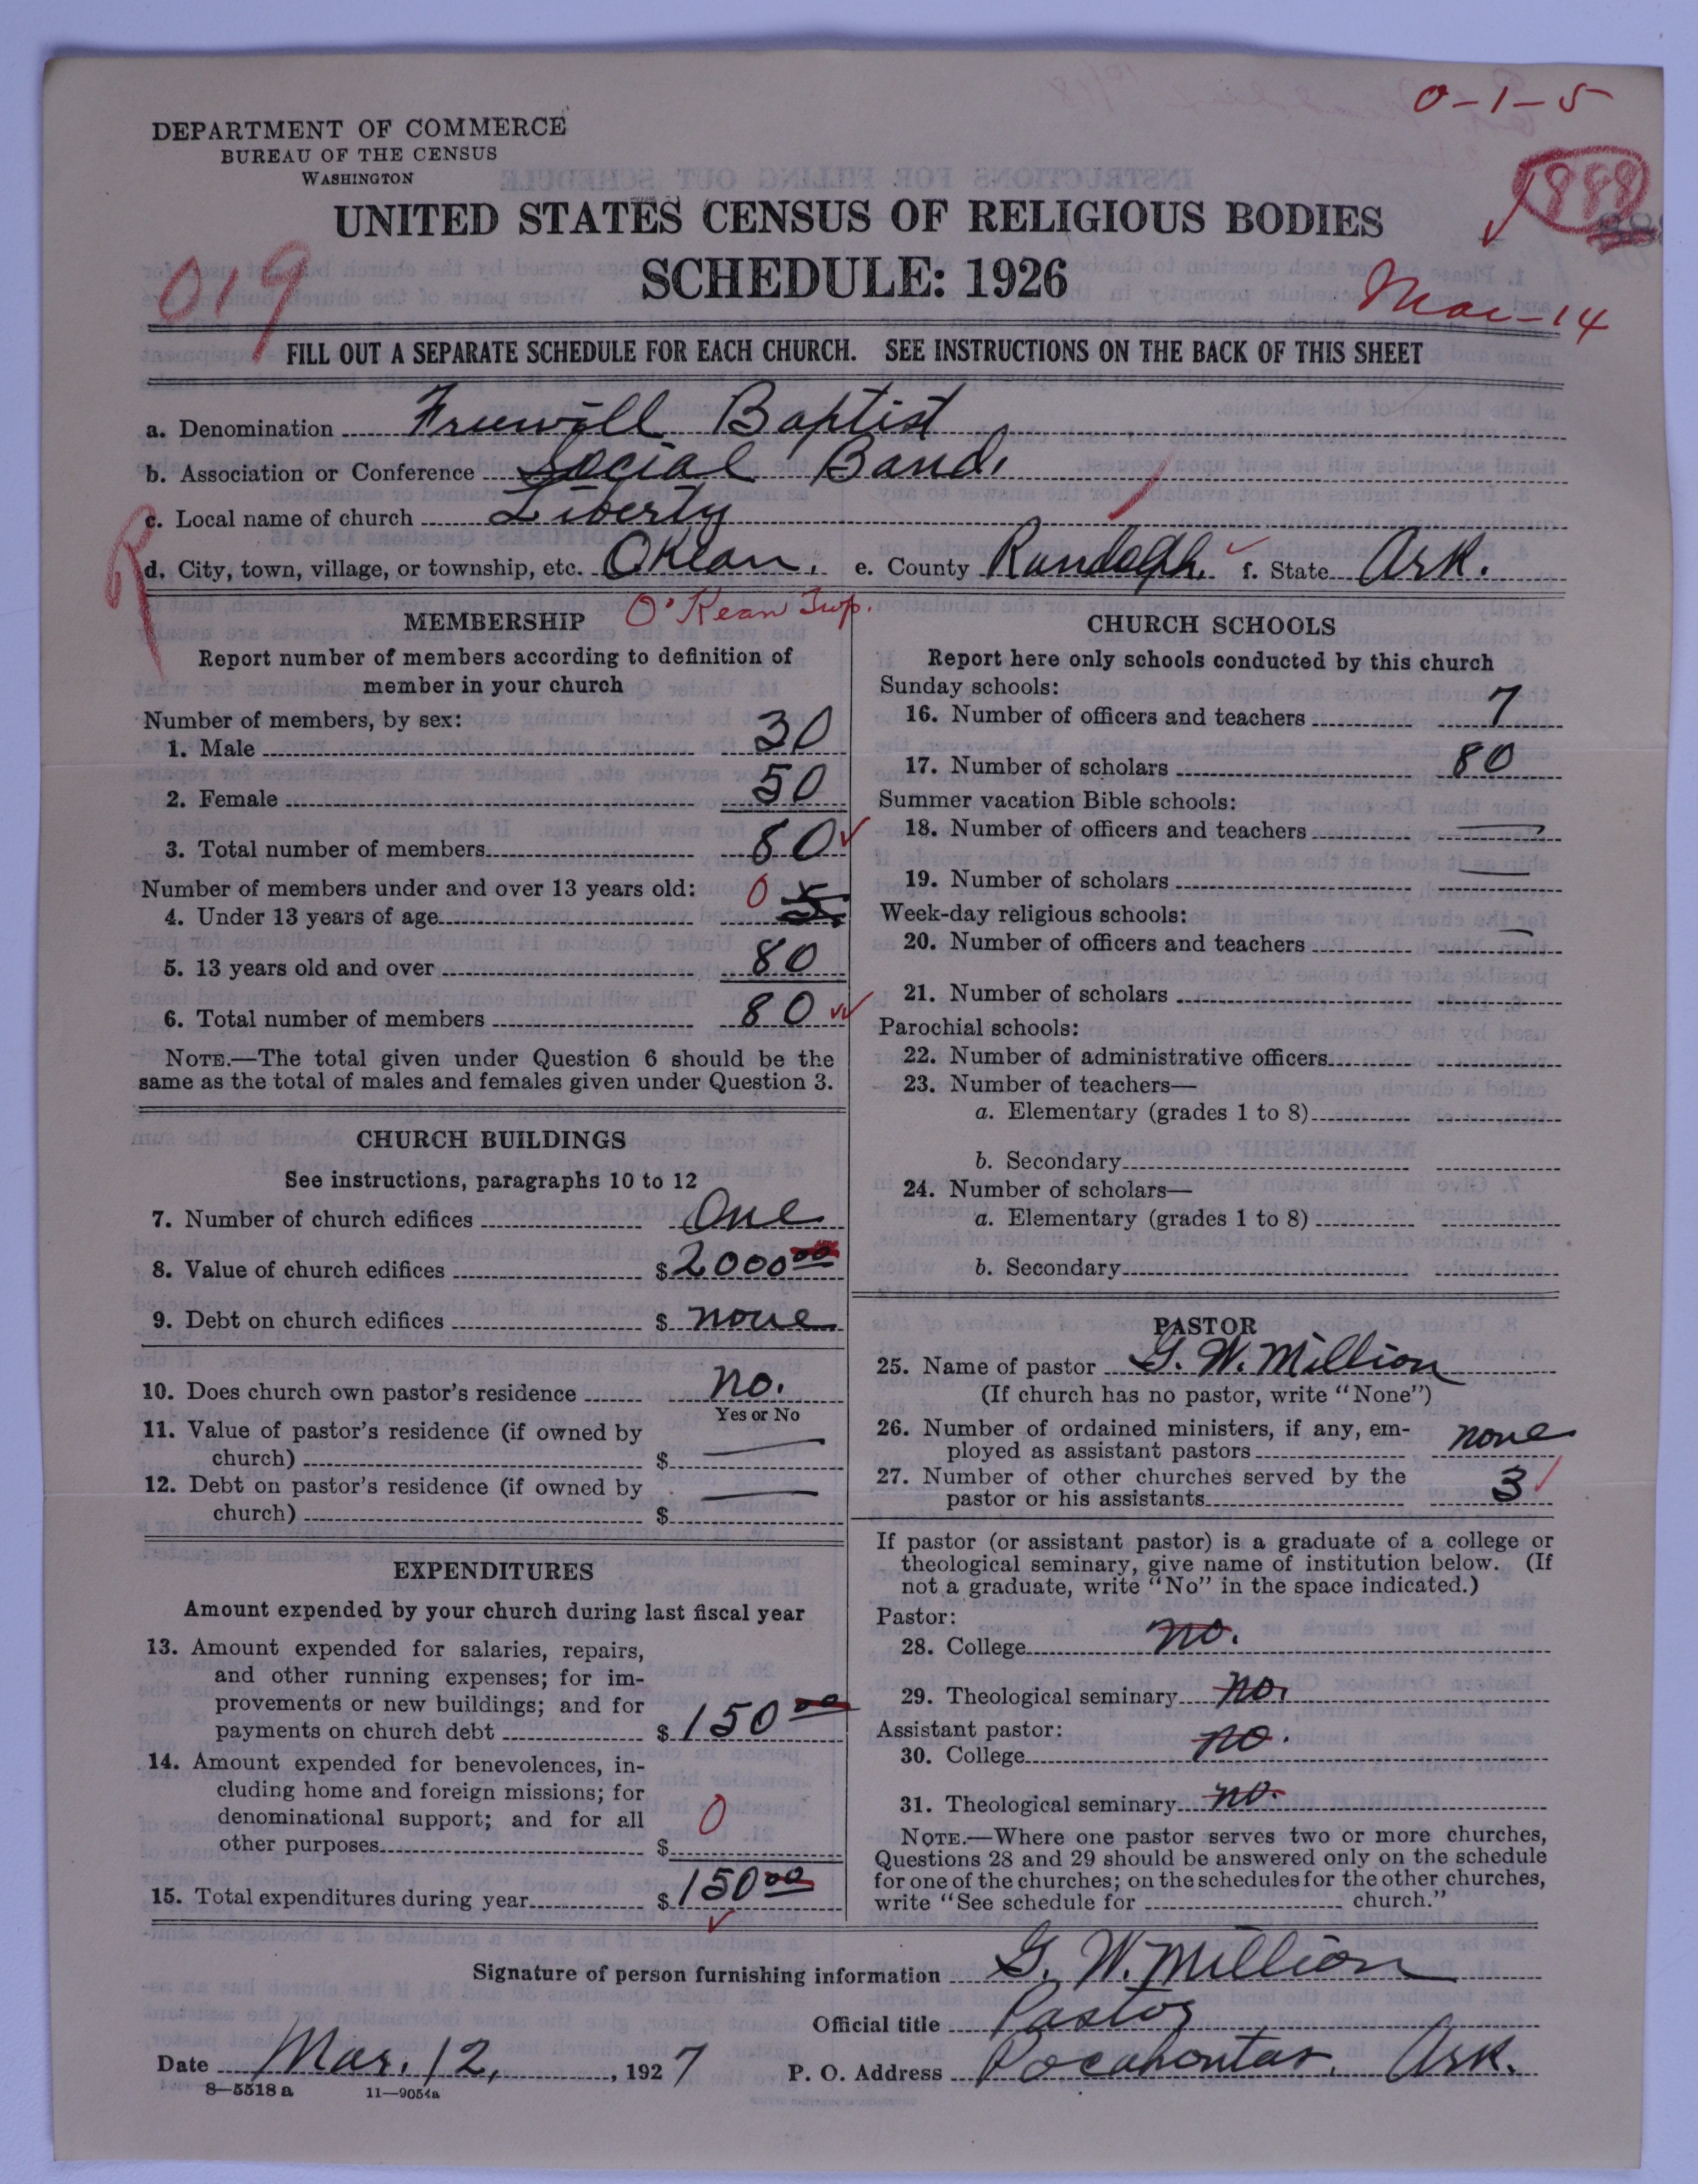 0-1-5
DEPARTMENT OF COMMERCE
BUREAU OF THE CENSUS
WASHINGTON
888
UNITED STATES CENSUS OF RELIGIOUS BODIES
019
SCHEDULE: 1926
Mar-14
FILL OUT A SEPARATE SCHEDULE FOR EACH CHURCH. SEE INSTRUCTIONS ON THE BACK OF THIS SHEET
a. Denomination Freewill Baptist
b. Association or Conference Social Band.
c. Local name of church Liberty
d. City, town, village, or township, etc. OKean. e. County Randolph. f. State Ark.
O'Kean Twp.
MEMBERSHIP
Report number of members according to definition of
member in your church
Number of members, by sex:
1. Male 30
2. Female 50
3. Total number of members 80
Number of members under and over 13 years old:
4. Under 13 years of age 0 5
5. 13 years old and over 80
6. Total number of members 80
NOTE.—The total given under Question 6 should be the
same as the total of males and females given under Question 3.
CHURCH BUILDINGS
See instructions, paragraphs 10 to 12
7. Number of church edifices One
8. Value of church edifices $ 2000 00
9. Debt on church edifices $ none
10. Does church own pastor's residence no.
Yes or No
11. Value of pastor's residence (if owned by
church) $ —
12. Debt on pastor's residence (if owned by
church) $ —
EXPENDITURES
Amount expended by your church during last fiscal year
13. Amount expended for salaries, repairs,
and other running expenses; for im-
provements or new buildings; and for
payments on church debt $ 150 00
14. Amount expended for benevolences, in-
cluding home and foreign missions; for
denominational support; and for all
other purposes $ 0
15. Total expenditures during year $ 150 00
CHURCH SCHOOLS
Report here only schools conducted by this church
Sunday schools:
16. Number of officers and teachers 7
17. Number of scholars 80
Summer vacation Bible schools:
18. Number of officers and teachers —
19. Number of scholars —
Week-day religious schools:
20. Number of officers and teachers —
21. Number of scholars
Parochial schools:
22. Number of administrative officers
23. Number of teachers—
a. Elementary (grades 1 to 8)
b. Secondary
24. Number of scholars—
a. Elementary (grades 1 to 8)
b. Secondary
PASTOR
25. Name of pastor G. W. Million
(If church has no pastor, write "None")
26. Number of ordained ministers, if any, em-
ployed as assistant pastors none
27. Number of other churches served by the
pastor or his assistants 3
If pastor (or assistant pastor) is a graduate of a college or
theological seminary, give name of institution below. (If
not a graduate, write "No" in the space indicated.)
Pastor:
28. College no.
29. Theological seminary no.
Assistant pastor:
30. College no.
31. Theological seminary no.
NOTE.—Where one pastor serves two or more churches,
Questions 28 and 29 should be answered only on the schedule
for one of the churches; on the schedules for the other churches,
write "See schedule for church."
Signature of person furnishing information G. W. Million
Official title Pastor
Date Mar. 12, 1927 P. O. Address Pocahontas, Ark.
8—5518 a 11—9054a